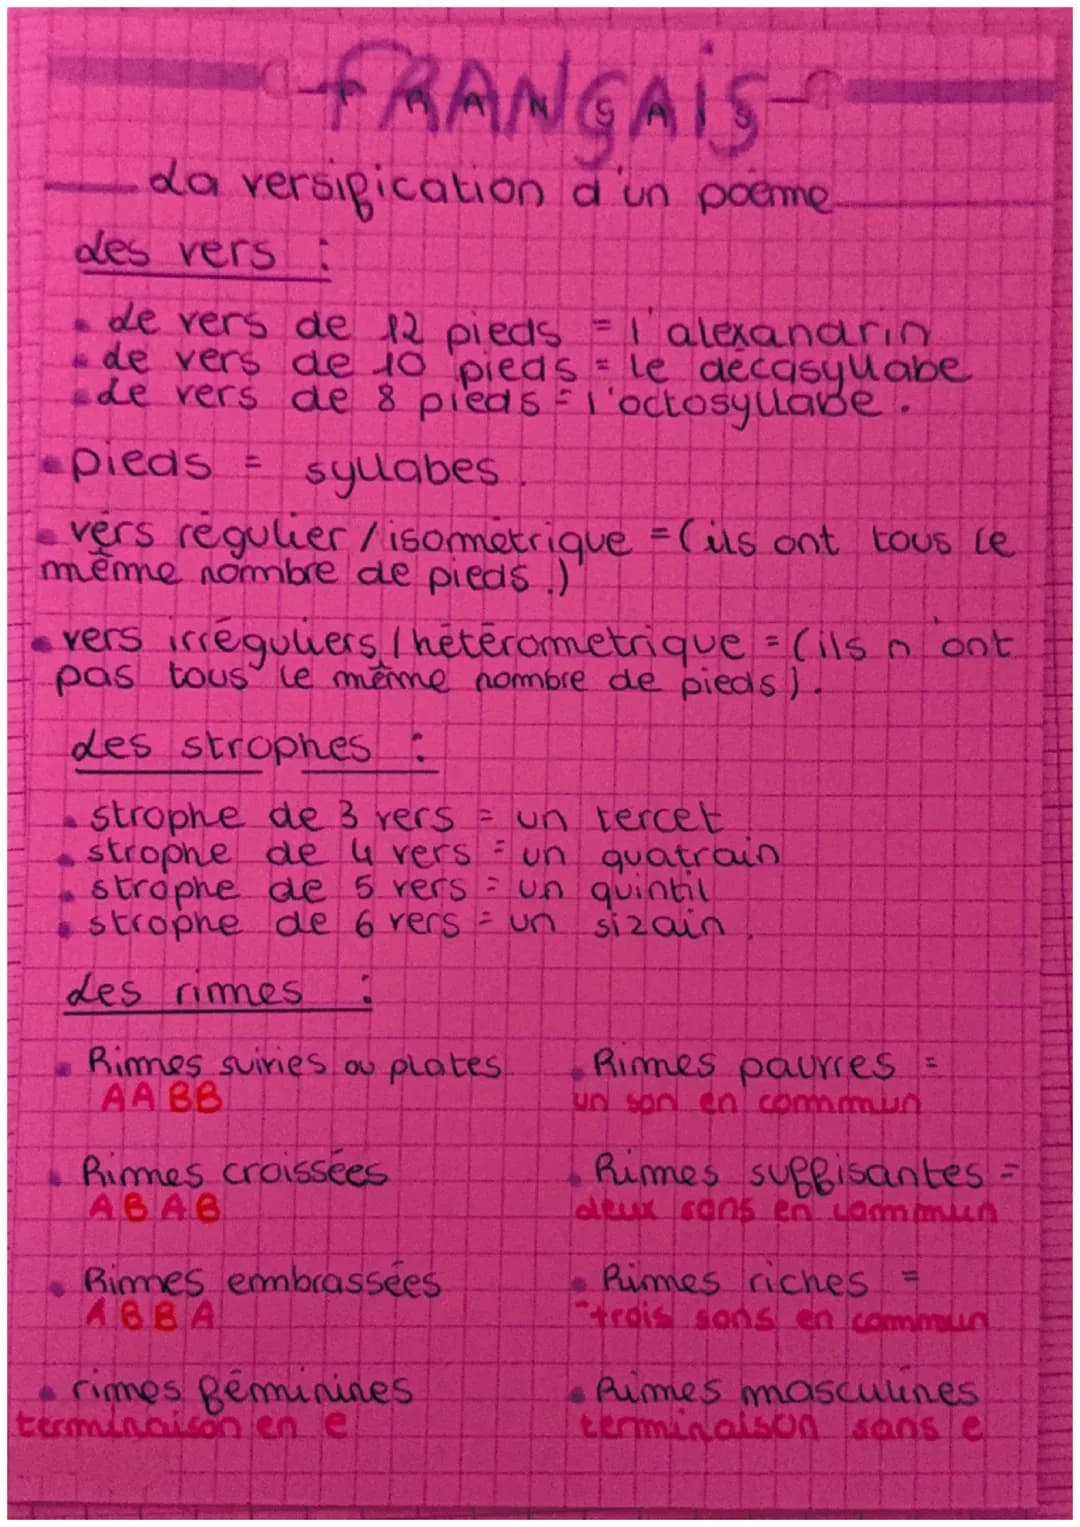 FRANÇAIS
La versification d'un poème
Les vers :
Le vers de 12 pieds = l'alexandrin
Le vers de 10 pieds = le décasyllabe
Le vers de 8 pieds = l'octosyllabe.
pieds = syllabes.
vers régulier / isométrique = (ils ont tous le
même nombre de pieds.)
vers irréguliers / hétérométrique = (ils n'ont
pas tous le même nombre de pieds).
Les strophes :
strophe de 3 vers = un tercet.
strophe de 4 vers = un quatrain
strophe de 5 vers = un quintil
strophe de 6 vers = un sizain.
Les rimes :
Rimes suivies ou plates
AABB
Rimes croissées
ABAB
Rimes embrassées
ABBA
rimes féminines
terminaison en e
Rimes pauvres =
un son en commun
Rimes suffisantes =
deux sons en commun
Rimes riches =
trois sons en commun
Rimes masculines
terminaison sans e